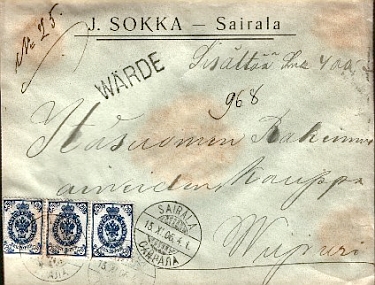 J. SOKKA – Sairala
No 25.
WÄRDE
Sisältää Smk 400
968
Itäsuomen Rakennus
aineiden kauppa
Wiipuri
SAIRALA
15 XI.06. 4 i.
САЙРАЛА